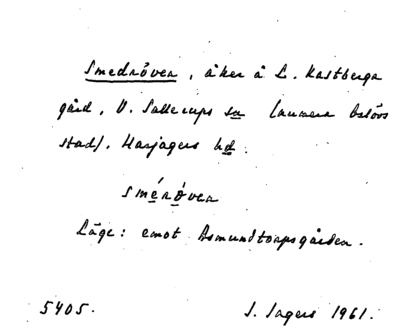 Smedröven, åker å L. Kastberga
gård, V. Sallerups sn (numera Eslövs
stad). Harjagers hd.
sméröven
Läge: emot Asmundtorpsgården.
5405. J. Sagers 1961.